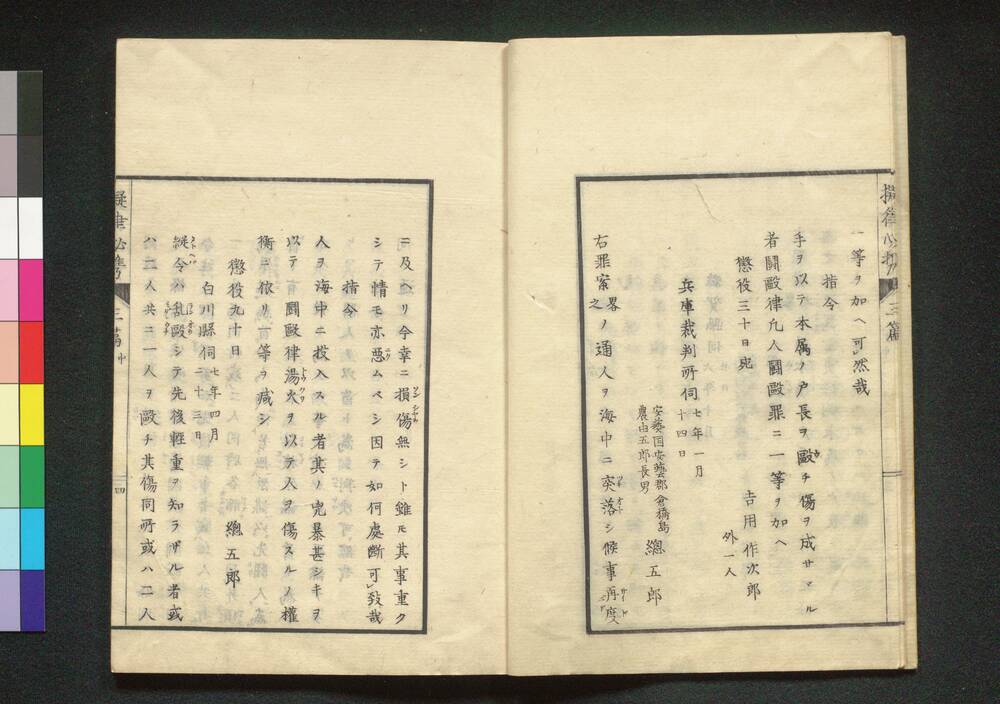 一等ヲ加ヘ可然哉
指令
手ヲ以テ本属ノ戸長ヲ毆チ傷ヲ成サヽル
者闘毆律凢人闘毆罪ニ一等ヲ加ヘ
懲役三十日宛
吉用作次郎
外一人
兵庫裁判所伺七年一月
十四日
安藝国安藝郡倉橋島
農由五郎長男
總五郎
右罪案畧ノ通人ヲ海中ニ突落シ候事再度
之
三篇
ニ及ヘリ今幸ニ損傷無シト雖モ其事重ク
シテ情モ亦悪ムベシ因テ如何處断可致哉
指令
人ヲ海中ニ投入スル者其ノ兇暴甚シキヲ
以テ闘毆律湯火ヲ以テ人ヲ傷スルノ權
衡ニ依リ一等ヲ減シ
懲役九十日
總五郎
白川縣伺七年四月
二十三日
縦令ハ乱毆シテ先後輕重ヲ知ラザル者或
ハ二人共ニ一人ヲ毆チ其傷同所或ハ二人
三篇
四